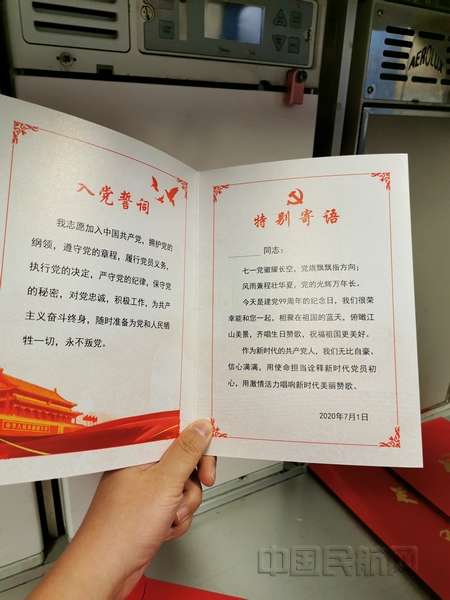 AEROLUX
入党誓词
我志愿加入中国共产党，拥护党的
纲领，遵守党的章程，履行党员义务，
执行党的决定，严守党的纪律，保守党
的秘密，对党忠诚，积极工作，为共产
主义奋斗终身，随时准备为党和人民牺
牲一切，永不叛党。
特别寄语
同志：
七一党徽耀长空，党旗飘飘指方向；
风雨兼程壮华夏，党的光辉万年长。
今天是建党99周年的纪念日，我们很荣
幸能和您一起，相聚在祖国的蓝天，俯瞰江
山美景，齐唱生日赞歌，祝福祖国更美好。
作为新时代的共产党人，我们无比自豪、
信心满满，用使命担当诠释新时代党员初
心，用激情活力唱响新时代美丽赞歌。
2020年7月1日
中国民航网